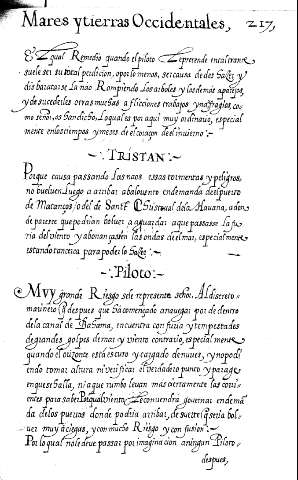 Mares y tierras Occidentales, 217,
El qual Remedio quando el piloto pretende
suele ser su total perdicion, o por lo menos, ser causa de
la nao Rompiendo los arboles y los demas aparejos,
y de sucedelles otras muchas aflicciones trabajos y naufragios, co
mo señor, os han dicho, lo qual es por aqui muy ordinario, especial
mente en los tiempos y meses del coraçon del inuierno.
TRISTAN:
Porque causa passando las naos essas tormentas y peligros,
no bueluen luego a arribar abaloento en demanda del puerto
de Matanças, o del de Sant Cristoual de la Hauana, aden
de parece que podrian boluer a aguardar a que passasse la fu
ria del viento y abonançassen las ondas de el mar, especialmente
estando tan cerca para poderlo hazer:
Piloto:
Muy grande Riesgo se le representa señor, Al discreto
marinero q despues que ha començado a nauegar por de dentro
de la canal de Bahama, encuentra con furia y tempestades
de grandes golpes de mar y viento contrario, especialmente
quando el orizonte esta escuro y cargado de nuues, y no pod
iendo tomar altura ni verificar el verdadero punto y parage
en que se halla, ni a que rumbo lleuan mas ciertamente las corri
entes para saber Por qual viento le conuendra gouernar en dema
da de los puertos donde podria arribar, de suerte q seria bol
uer muy a ciegas, y con mucho Riesgo y confusion:
Por lo qual no le deue passar por imaginacion a ningun Piloto
despues,